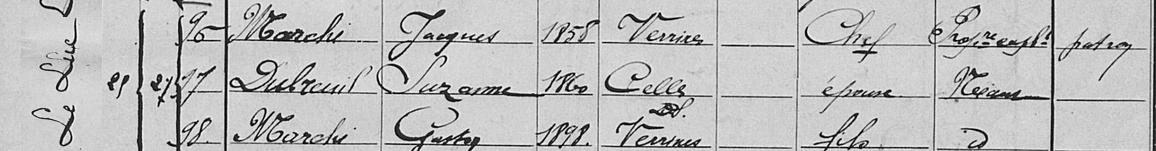 96 Marché Jacques 1858 Verrines Chef Prop.re exp.t patron
Le Luc 25 27 97 Dubreuil Suzanne 1860 Celles épouse Néant
98. Marché Gaston 1898. Verrines fils d